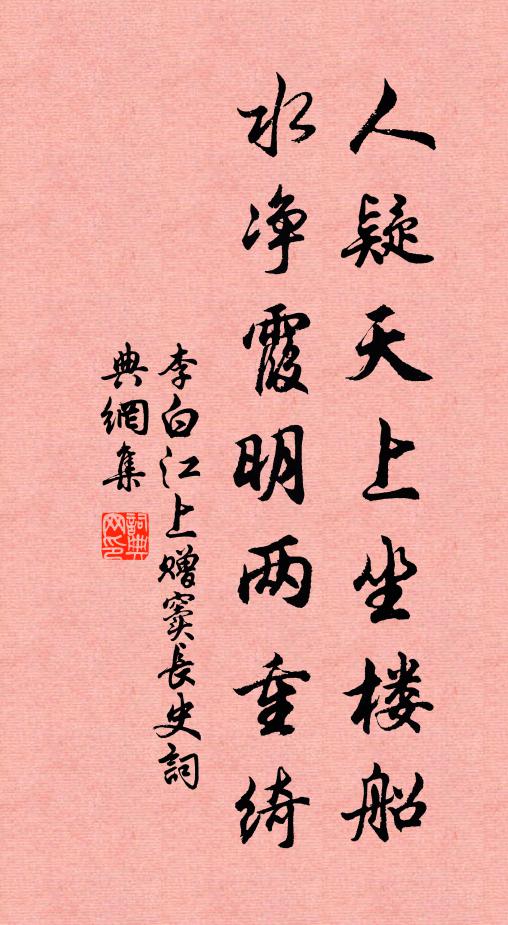 人疑天上坐楼船
水净霞明两重绮
李白江上赠窦長史詞
典網集
詞典网印